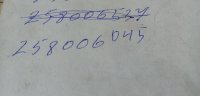 258006527
258006045